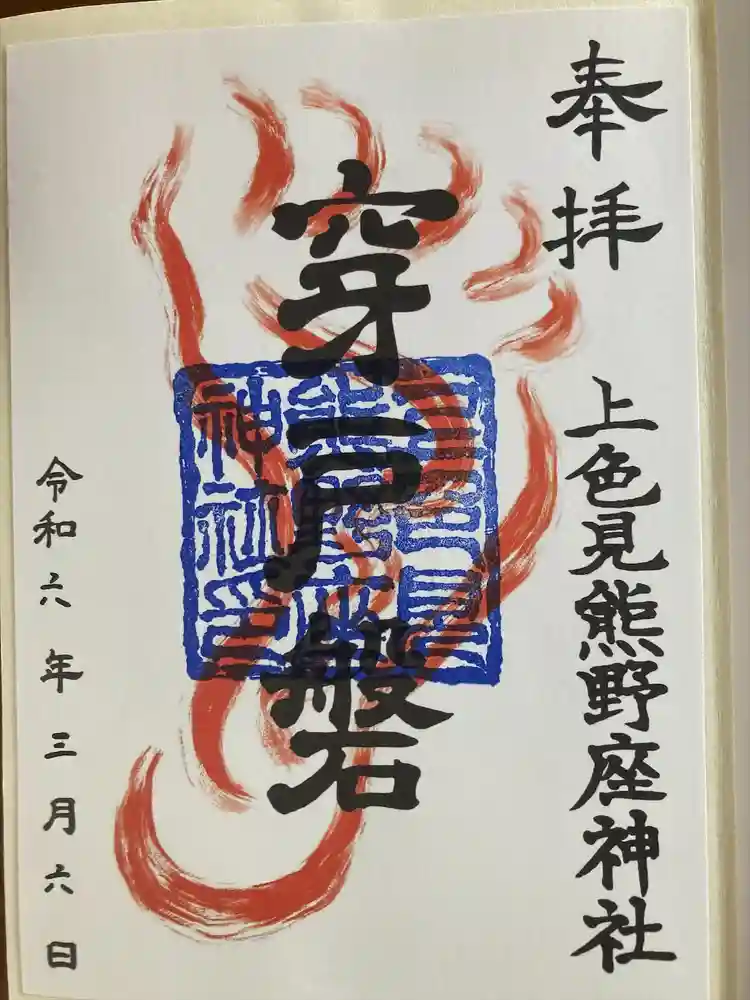 奉拝
上色見熊野座神社
穿戸磐
上色見
熊野座
神社印
令和六年三月六日